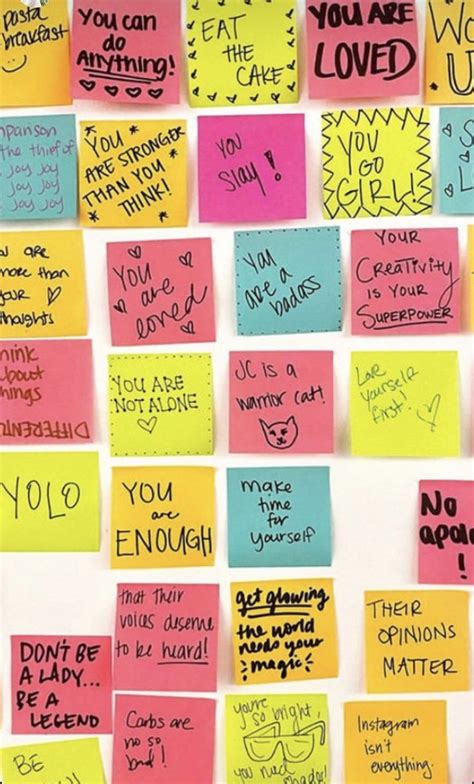 pasta
breakfast
You can
do
Anything!
EAT
THE
CAKE
YOU ARE
LOVED
WO
U
mparison
the thief of
joy joy
joy joy
joy joy
YOU
ARE STRONGER
THAN YOU
THINK!
YOU
Slay!
YOU
GO
GIRL!
u are
more than
your
thoughts
You
are
loved
You
are a
badass
YOUR
Creativity
IS YOUR
SUPERPOWER
hink
about
hings
DIFFERENTL
YOU ARE
NOT ALONE
JC is a
warrior cat!
Love
yourself
first!
YOLO
YOU
are
ENOUGH
make
time
for
yourself
No
apolo
!
that their
voices deserve
to be heard!
get glowing
the world
needs your
magic
THEIR
OPINIONS
MATTER
DON'T BE
A LADY...
BE A
LEGEND
Carbs are
no so
bad!
you're
so bright,
you need
shades!
Instagram
isn't
everything.
BE